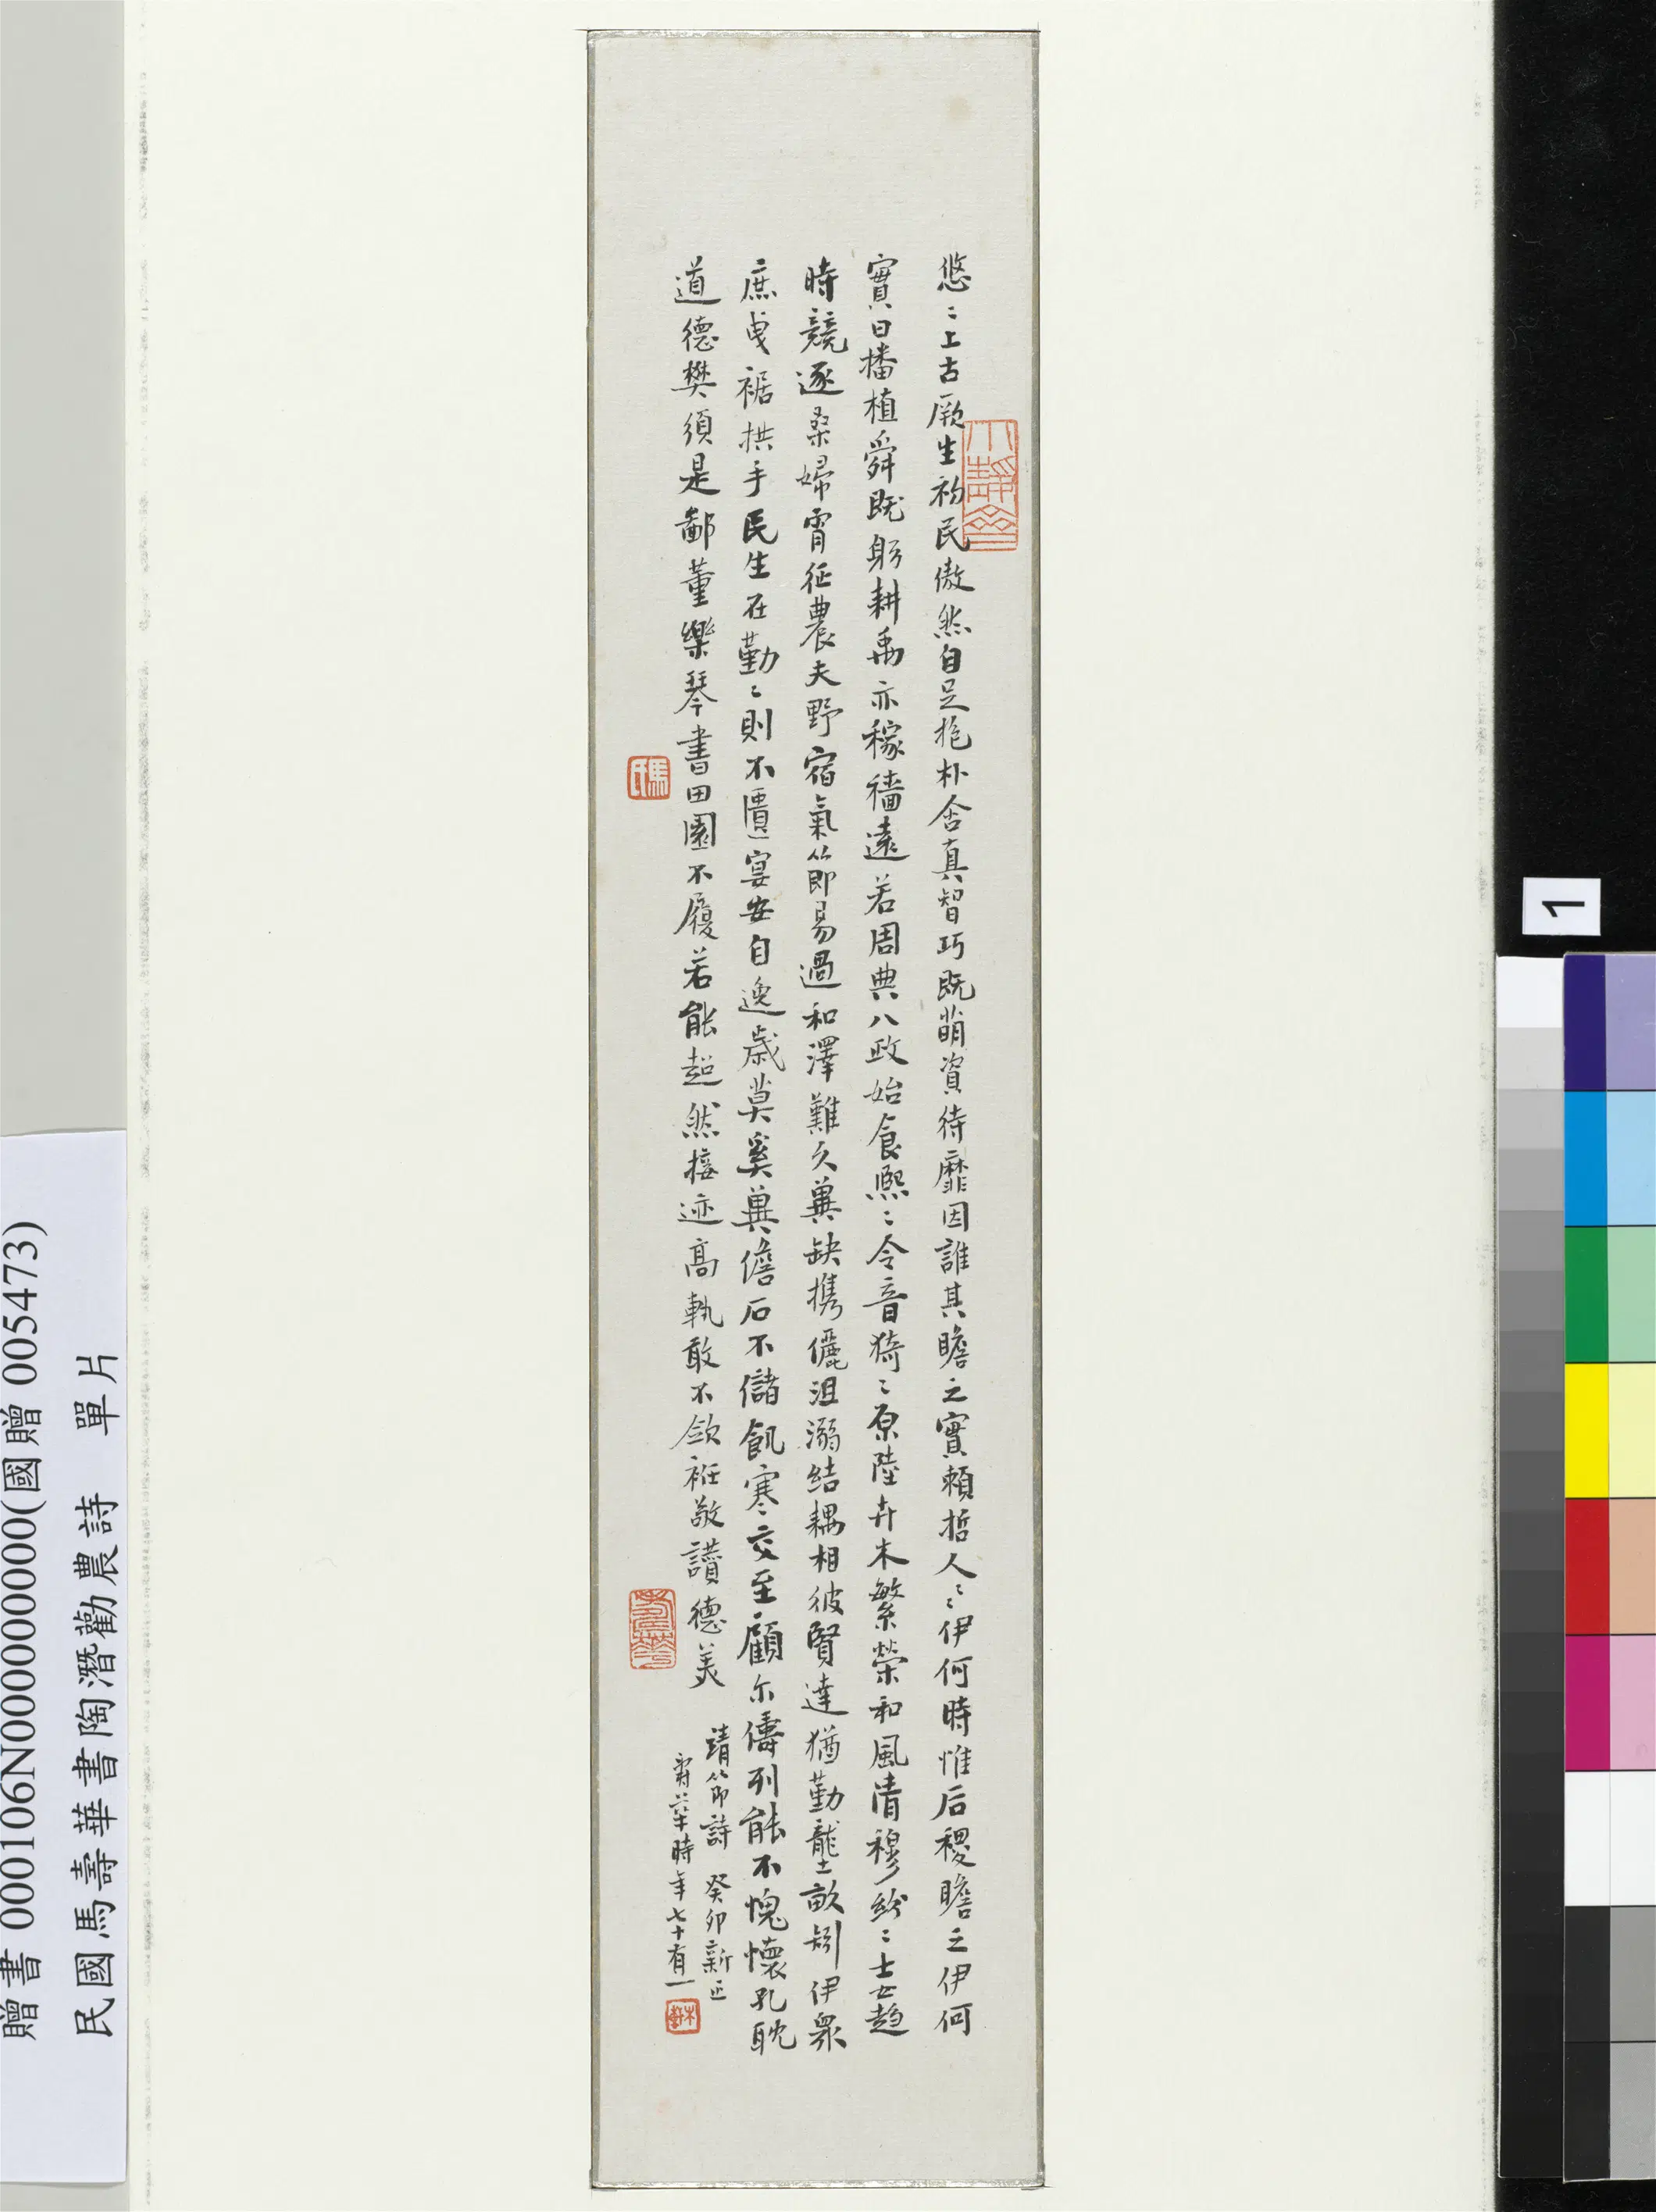 悠〻上古厥生初民傲然自足抱朴含真智巧既萌資待靡因誰其贍之實賴哲人〻伊何時惟后稷贍之伊何
實曰播植舜既躬耕禹亦稼穡遠若周典八政始食熙〻令音猗〻原陸卉木繁榮和風清穆紛〻士女趍
時競逐桑婦宵征農夫野宿氣節易過和澤難久冀缺携儷沮溺結耦相彼賢達猶勤壟畝矧伊眾
庶曳裾拱手民生在勤〻則不匱宴安自逸歲莫奚冀儋石不儲飢寒交至顧尔儔列能不愧懷孔耽
道德樊須是鄙董樂琴書田園不履若能超然接迹高軌敢不歛衽敬讚德美
靖節詩 癸卯新正
壽華時年七十有一
馬氏
壽華
贈書 000106N000000000(國贈 005473)
民國馬壽華書陶潛勸農詩 單片
1